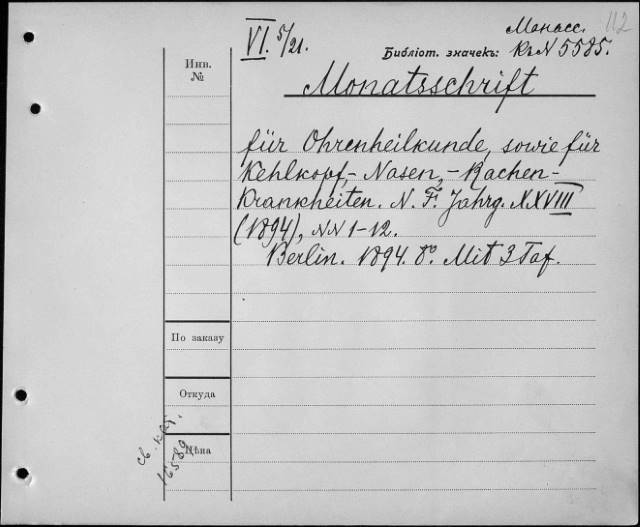 112
VI. 5/21.
Манасс.
Библіот. значекъ: Кг N 5585.
Инв. №
Monatsschrift
für Ohrenheilkunde, sowie für
Kehlkopf,- Nasen,- Rachen-
krankheiten. N. F. Jahrg. XXVIII
(1894), NN 1-12.
Berlin. 1894. 8º. Mit 3 Taf.
По заказу
Откуда
Цѣна
16589